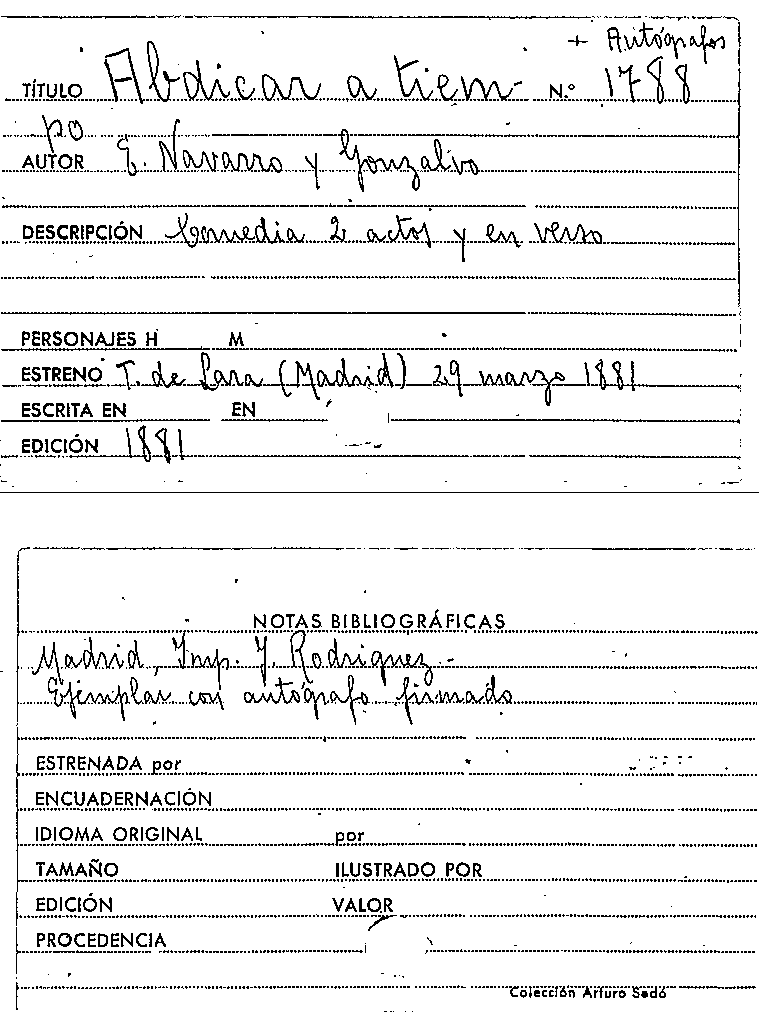 + Autógrafos
TÍTULO Abdicar a tiem- N.º 1788
po
AUTOR E. Navarro y Gonzalvo
DESCRIPCIÓN Comedia 2 actos y en verso
PERSONAJES H M
ESTRENO T. de Lara (Madrid) 29 marzo 1881
ESCRITA EN EN
EDICIÓN 1881
NOTAS BIBLIOGRÁFICAS
Madrid, Imp. J. Rodriguez.-
Ejemplar con autógrafo firmado
ESTRENADA por
ENCUADERNACIÓN
IDIOMA ORIGINAL por
TAMAÑO ILUSTRADO POR
EDICIÓN VALOR
PROCEDENCIA
Colección Arturo Sedó